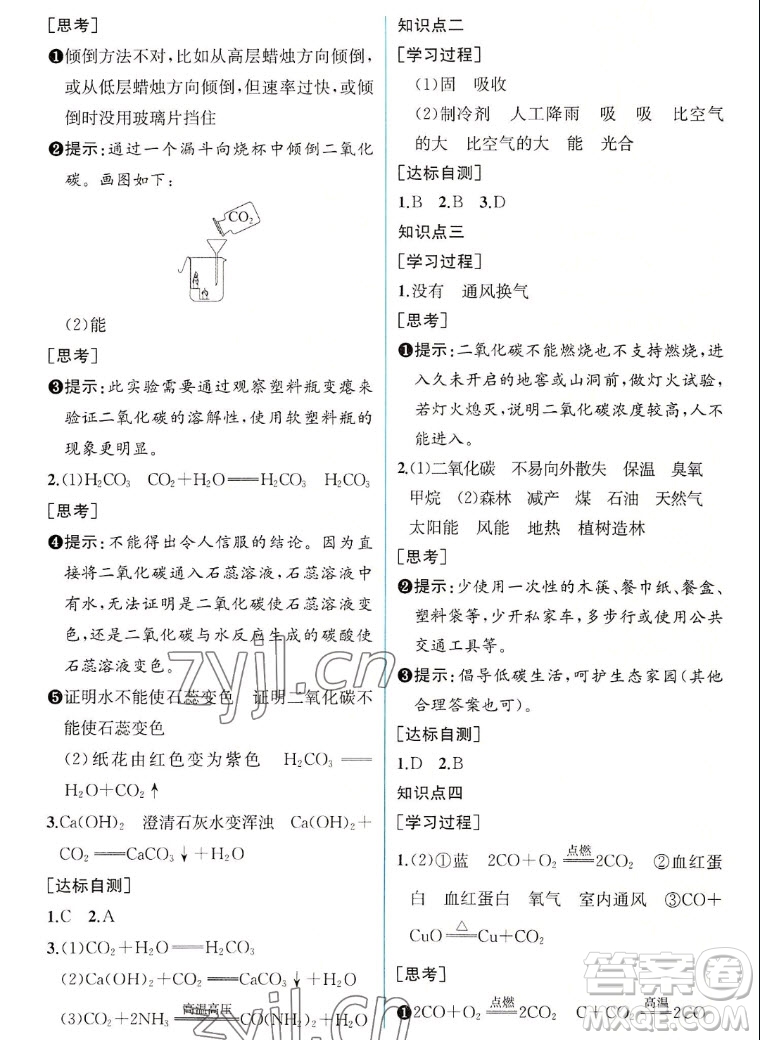 [思考]
❶倾倒方法不对，比如从高层蜡烛方向倾倒，
或从低层蜡烛方向倾倒，但速率过快，或倾
倒时没用玻璃片挡住
❷提示：通过一个漏斗向烧杯中倾倒二氧化
碳。画图如下：
CO₂
(2)能
[思考]
❸提示：此实验需要通过观察塑料瓶变瘪来
验证二氧化碳的溶解性，使用软塑料瓶的
现象更明显。
2.(1)H₂CO₃ CO₂+H₂O══H₂CO₃ H₂CO₃
[思考]
❹提示：不能得出令人信服的结论。因为直
接将二氧化碳通入石蕊溶液，石蕊溶液中
有水，无法证明是二氧化碳使石蕊溶液变
色，还是二氧化碳与水反应生成的碳酸使
石蕊溶液变色。
❺证明水不能使石蕊变色 证明二氧化碳不
能使石蕊变色
(2)纸花由红色变为紫色 H₂CO₃══
H₂O+CO₂↑
3.Ca(OH)₂ 澄清石灰水变浑浊 Ca(OH)₂+
CO₂══CaCO₃↓+H₂O
[达标自测]
1.C 2.A
3.(1)CO₂+H₂O══H₂CO₃
(2)Ca(OH)₂+CO₂══CaCO₃↓+H₂O
(3)CO₂+2NH₃ 高温高压══ CO(NH₂)₂+H₂O
知识点二
[学习过程]
(1)固 吸收
(2)制冷剂 人工降雨 吸 吸 比空气
的大 比空气的大 能 光合
[达标自测]
1.B 2.B 3.D
知识点三
[学习过程]
1.没有 通风换气
[思考]
❶提示：二氧化碳不能燃烧也不支持燃烧，进
入久未开启的地窖或山洞前，做灯火试验，
若灯火熄灭，说明二氧化碳浓度较高，人不
能进入。
2.(1)二氧化碳 不易向外散失 保温 臭氧
甲烷 (2)森林 减产 煤 石油 天然气
太阳能 风能 地热 植树造林
[思考]
❷提示：少使用一次性的木筷、餐巾纸、餐盒、
塑料袋等，少开私家车，多步行或使用公共
交通工具等。
❸提示：倡导低碳生活，呵护生态家园(其他
合理答案也可)。
[达标自测]
1.D 2.B
知识点四
[学习过程]
1.(2)①蓝 2CO+O₂ 点燃══ 2CO₂ ②血红蛋
白 血红蛋白 氧气 室内通风 ③CO+
CuO △══ Cu+CO₂
[思考]
❶2CO+O₂ 点燃══ 2CO₂ C+CO₂ 高温══ 2CO
zyjl.cn
zyjl.cn
答案卷